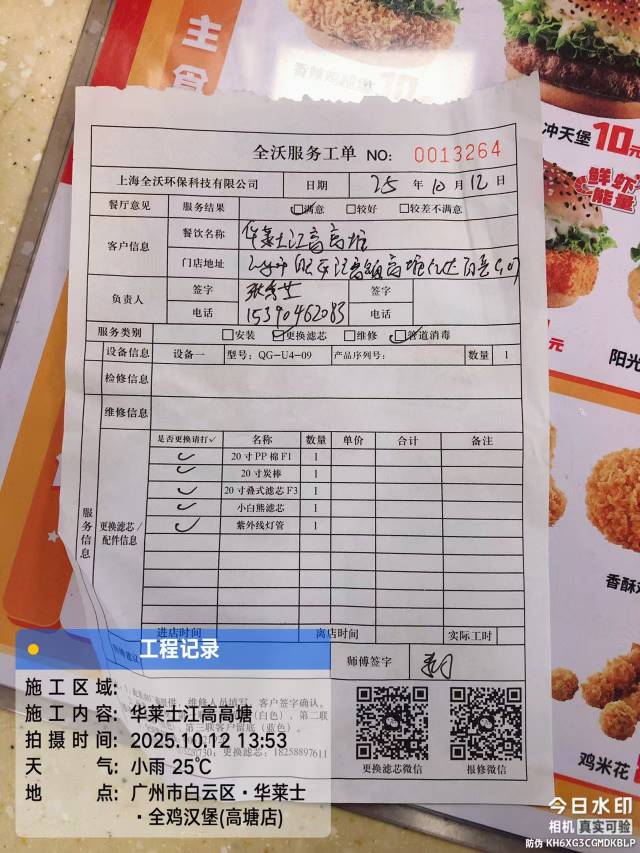 主食
香
10元
冲天堡10元
鲜虾
能量
元
阳光
香酥鸡
鸡米花
全沃服务工单 NO: 0013264
上海全沃环保科技有限公司 日期 25年10月12日
餐厅意见 服务结果 ☑满意 □较好 □较差不满意
客户信息 餐饮名称 华莱士江高高塘
门店地址
负责人 签字 签字
电话 15390462083 电话
服务类别 □安装 ☑更换滤芯 □维修 ☑管道消毒
设备信息 设备一 型号: QG-U4-09 产品序列号: 数量 1
检修信息
维修信息
服务信息
更换滤芯/配件信息
是否更换请打✓ 名称 数量 单价 合计 备注
✓ 20寸PP棉F1 1
✓ 20寸炭棒 1
✓ 20寸叠式滤芯F3 1
✓ 小白熊滤芯 1
✓ 紫外线灯管 1
进店时间 离店时间 实际工时
师傅签字
维修人员填写，客户签字确认。
(白色)，第二联
第三联客户留底(蓝色)。
730; 更换滤芯: 18258897611
更换滤芯微信 报修微信
工程记录
施工区域:
施工内容: 华莱士江高高塘
拍摄时间: 2025.10.12 12:53
天气: 小雨 25℃
地点: 广州市白云区·华莱士
·全鸡汉堡(高塘店)
今日水印
相机 真实可验
防伪 KH6XG3CGMDKBLP